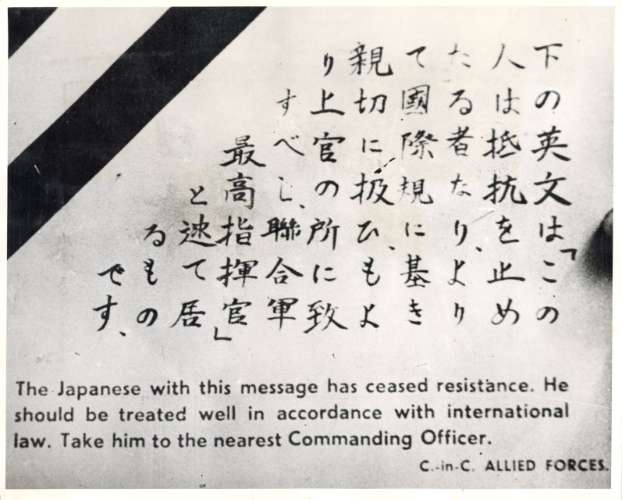 下の英文は「この
人は抵抗を止め
たる者なり、より
て國際規に基き
親切に扱ひ、もよ
り上官の所に致
すべし、聯合軍
最高指揮官」
と逑て居
るもの
です、
The Japanese with this message has ceased resistance. He
should be treated well in accordance with international
law. Take him to the nearest Commanding Officer.
C.-in-C. ALLIED FORCES.